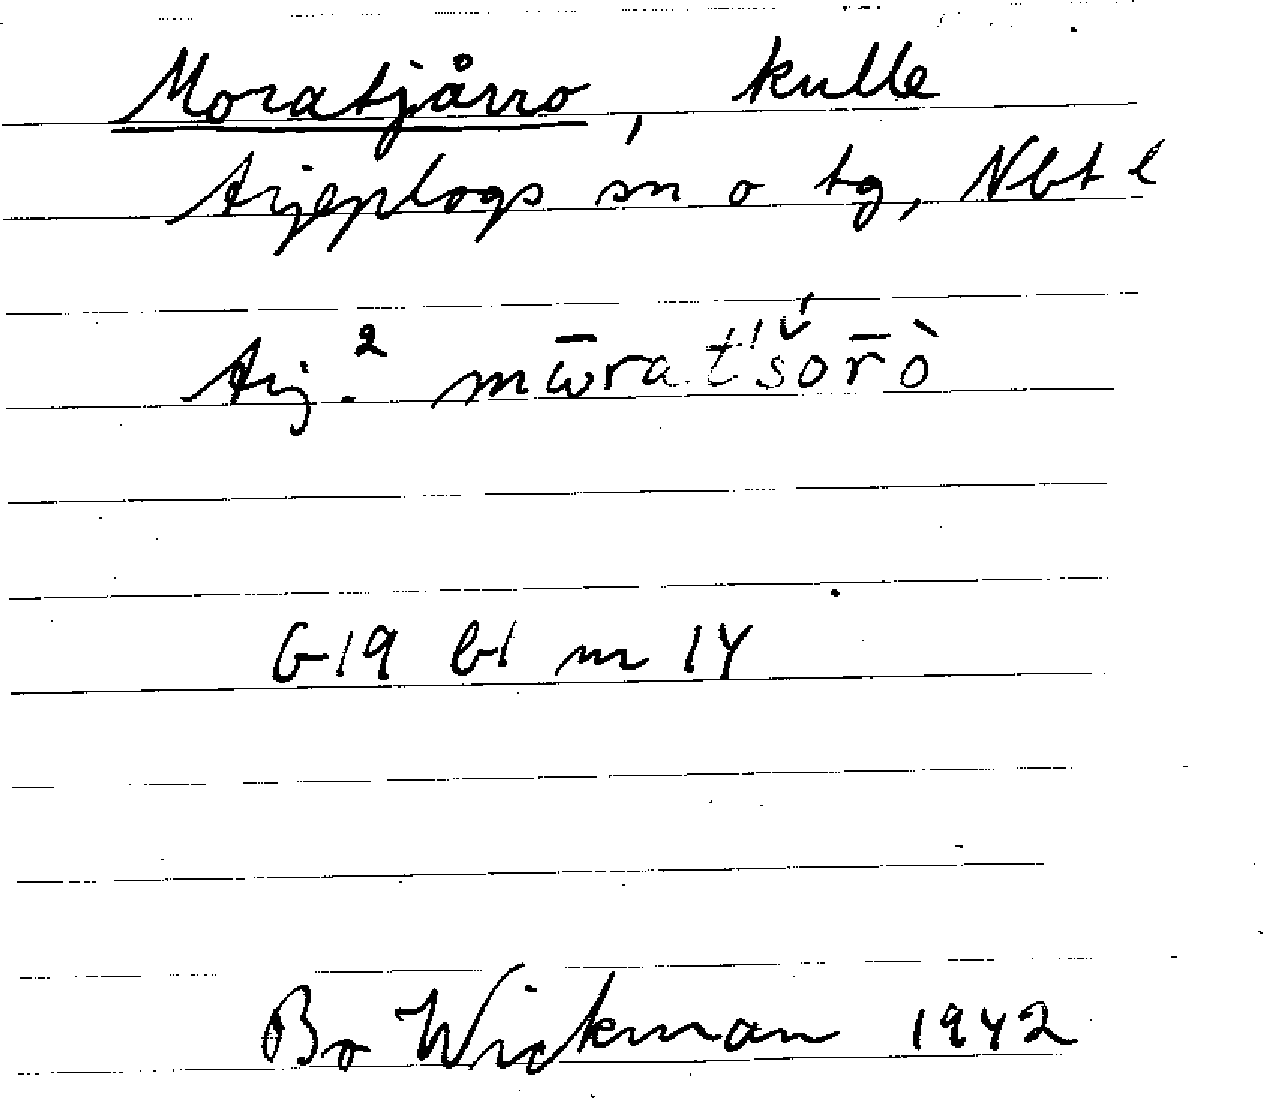 Moratjårro, kulle
Arjeplogs sn o tg, Nbt l
Arj.² mω̄rat'šo͕r̄ò
G19 bl nr 14
Bo Wickman 1942